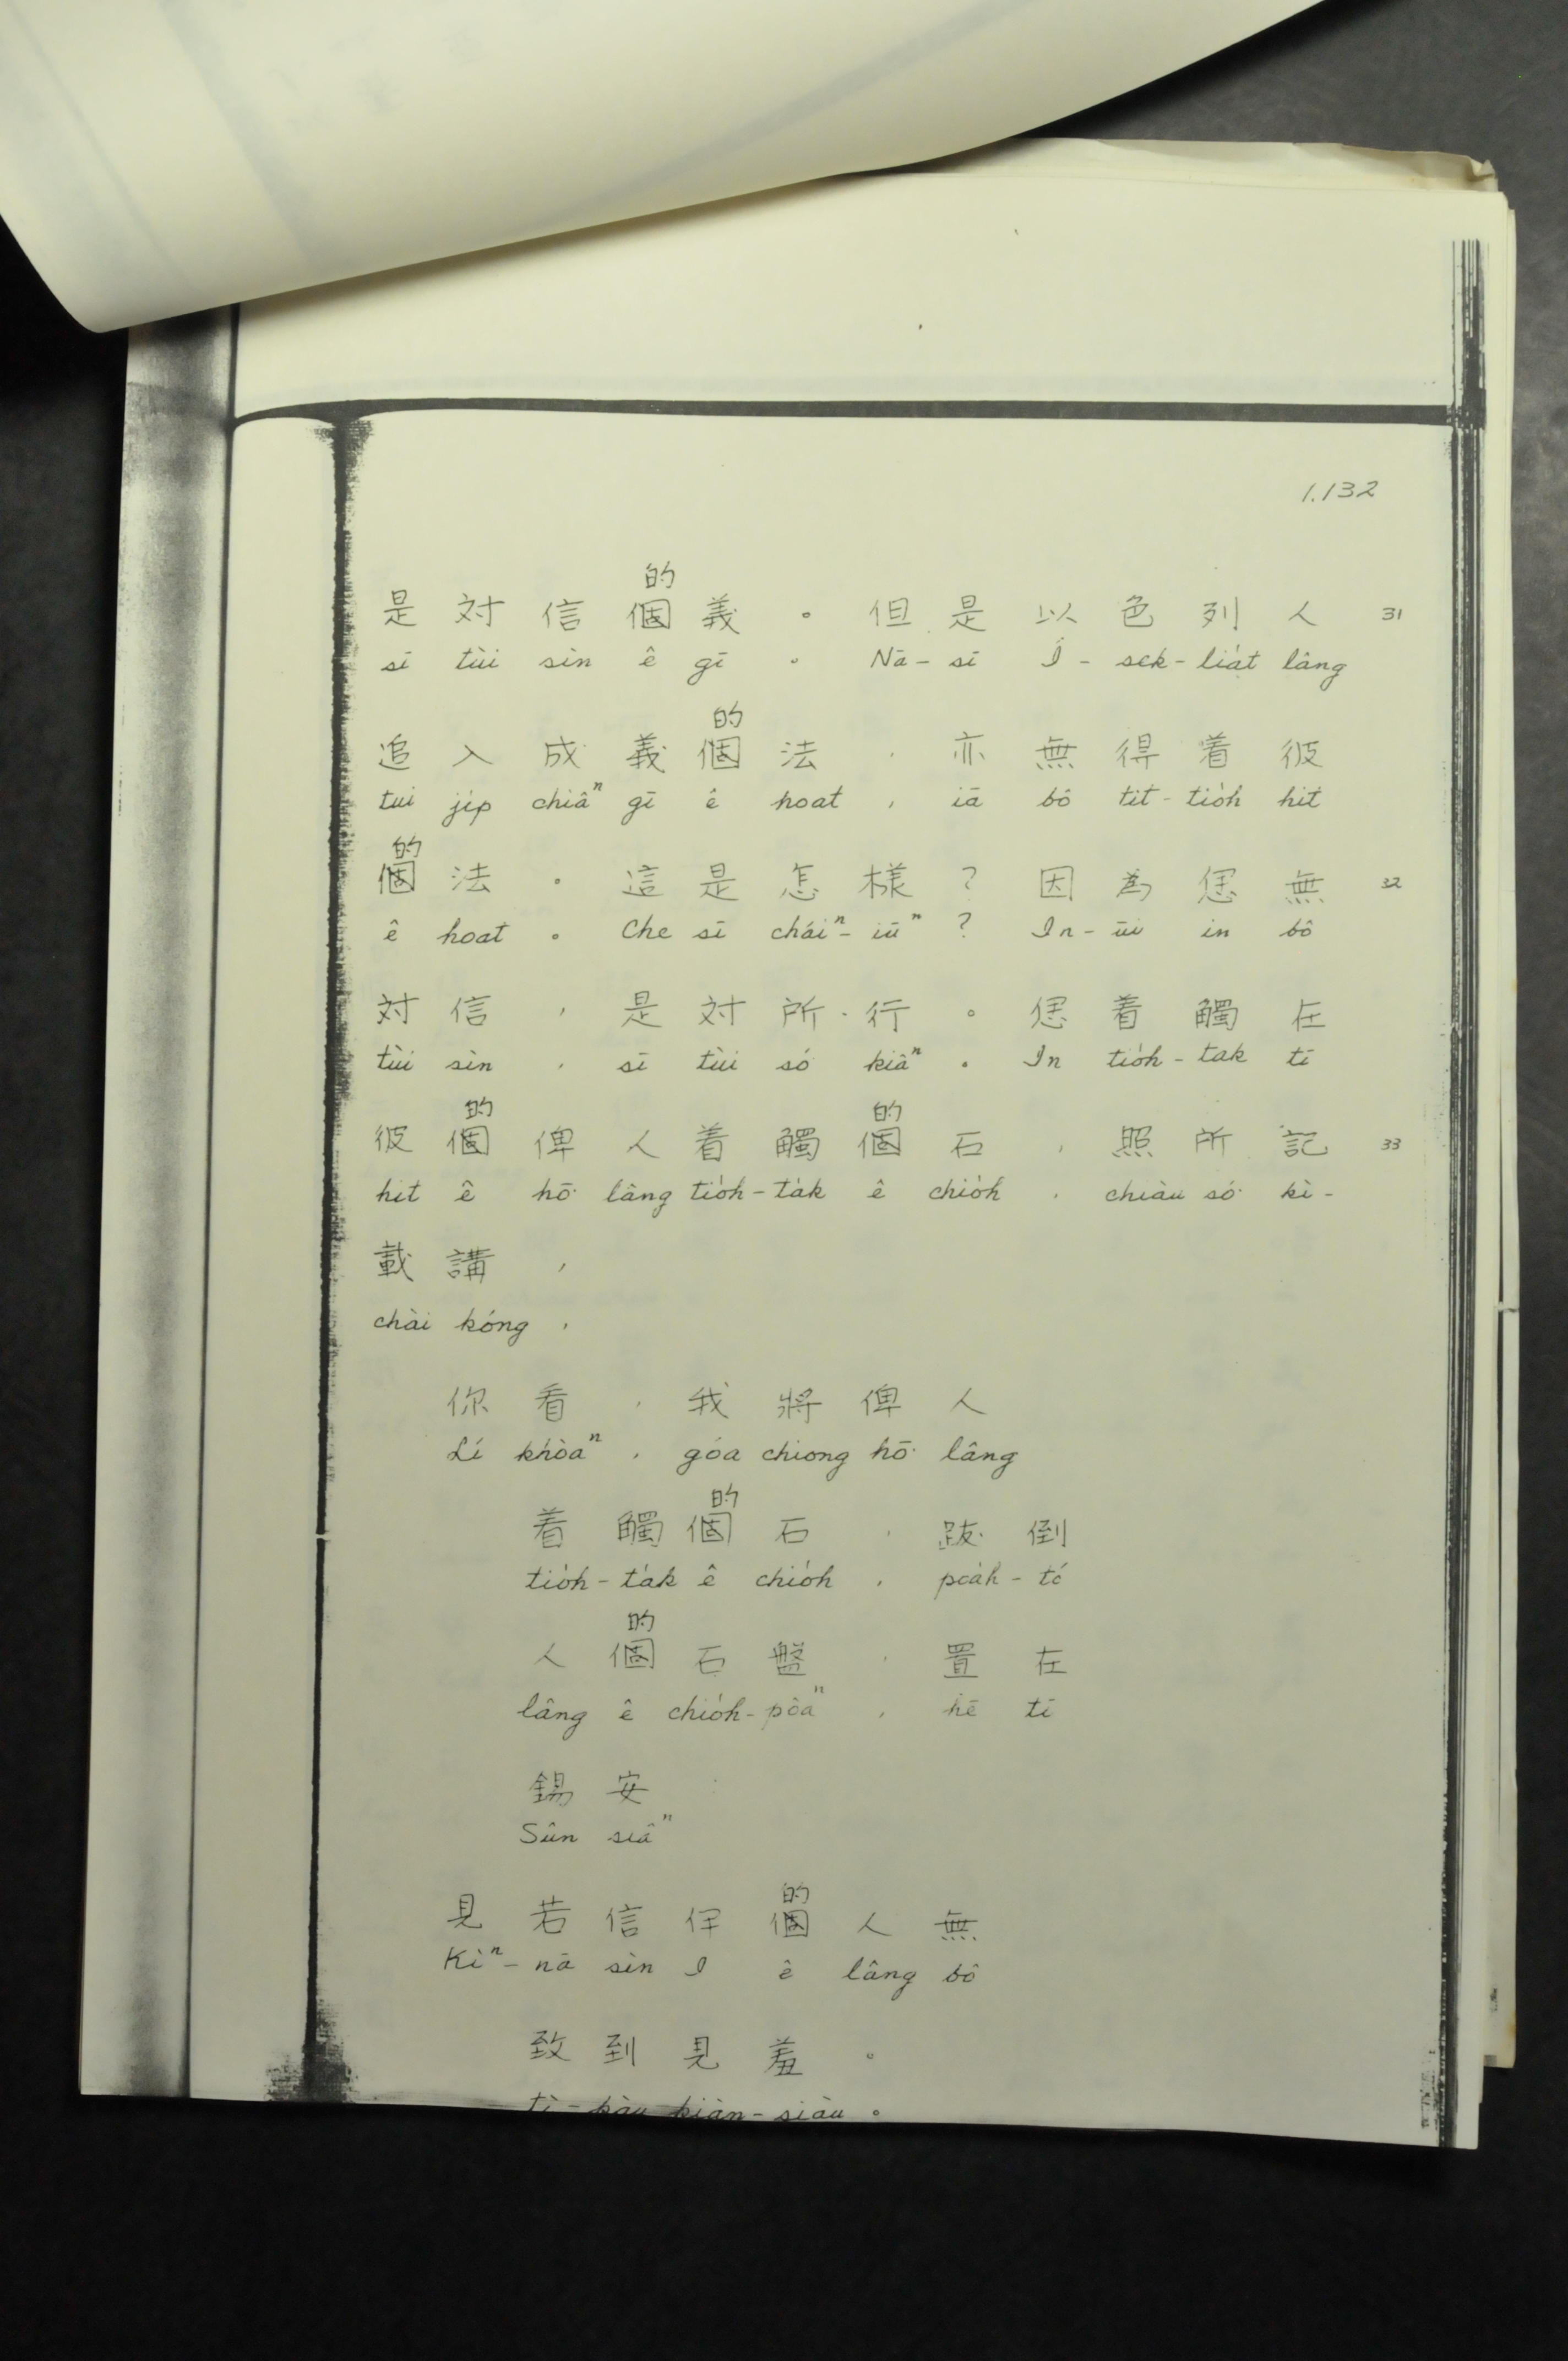 1.132
的
是 対 信 個 義 。 但 是 以 色 列 人 31
sī tùi sìn ê gī 。 Nā-sī Í-sek-lia̍t lâng
的
追 入 成 義 個 法 , 亦 無 得 着 彼
tui ji̍p chiâⁿ gī ê hoat , iā bô tit-tio̍h hit
的
個 法 。 這 是 怎 樣 ? 因 為 無 32
ê hoat 。 Che sī cháiⁿ-iūⁿ ? In-ūi in bô
対 信 , 是 対 所 行 。 着 觸 在
tùi sìn , sī tùi só kiâⁿ 。 In tio̍h-tak tī
的 的
彼 個 俾 人 着 觸 個 石 , 照 所 記 33
hit ê hō͘ lâng tio̍h-ta̍k ê chio̍h , chiàu só͘ kì-
載 講 ,
chài kóng ,
你 看 , 我 將 俾 人
Lí khòaⁿ , góa chiong hō͘ lâng
的
着 觸 個 石 , 跋 倒
tio̍h-ta̍k ê chio̍h , poa̍h-tó
的
人 個 石 盤 , 置 在
lâng ê chio̍h-pôaⁿ , hē tī
錫 安
Sûn siâⁿ
的
見 若 信 伊 個 人 無
Kìⁿ-nā sìn I ê lâng bô
致 到 見 羞 。
tì-kàu kiàn-siàu 。